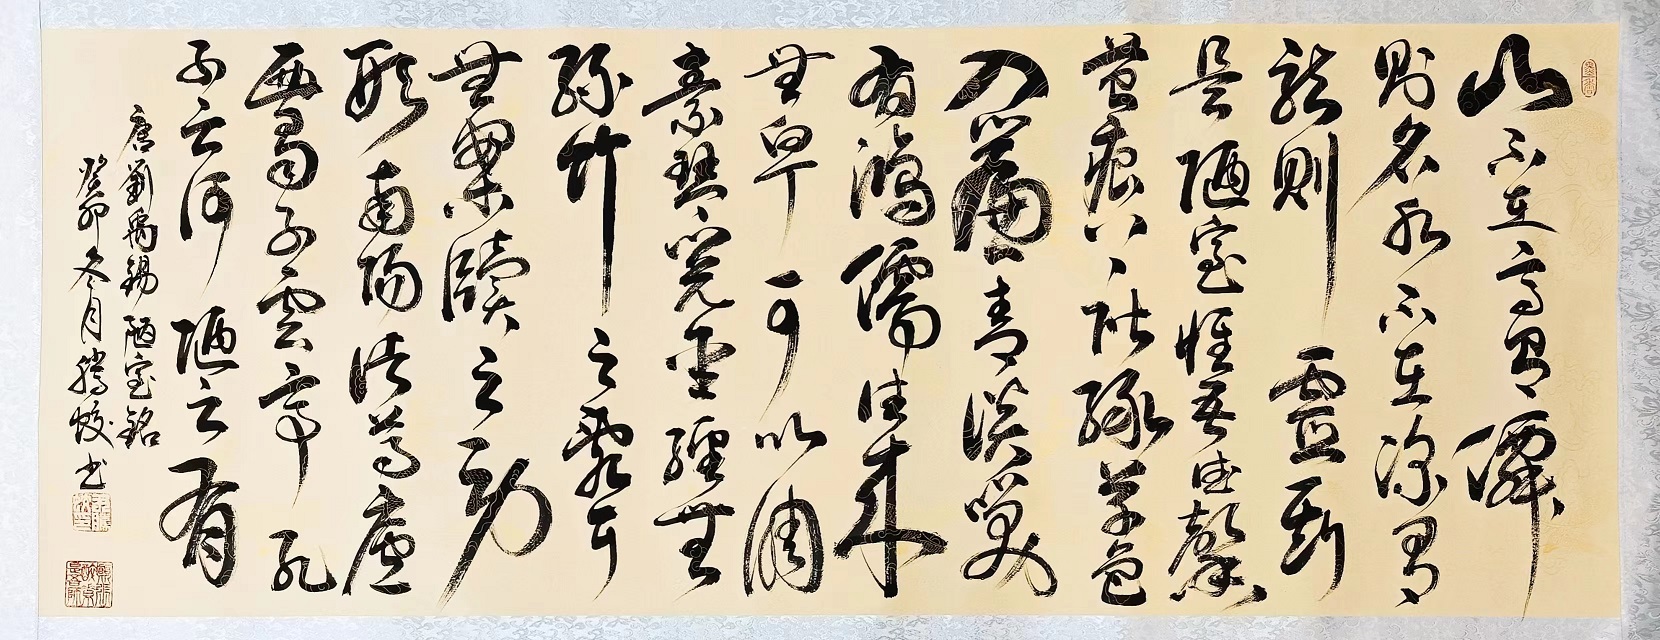 山不在高有僊
則名水不在深有
龍則靈斯
是陋室惟吾德馨
苔痕上階緑草色
入簾青談笑
有鴻儒往来
無白丁可以調
素琴閲金經無
絲竹之亂耳
無案牘之勞
形南陽諸葛廬
西蜀子雲亭孔
子云何陋之有
唐劉禹錫陋室銘
癸卯冬月騰蛟书